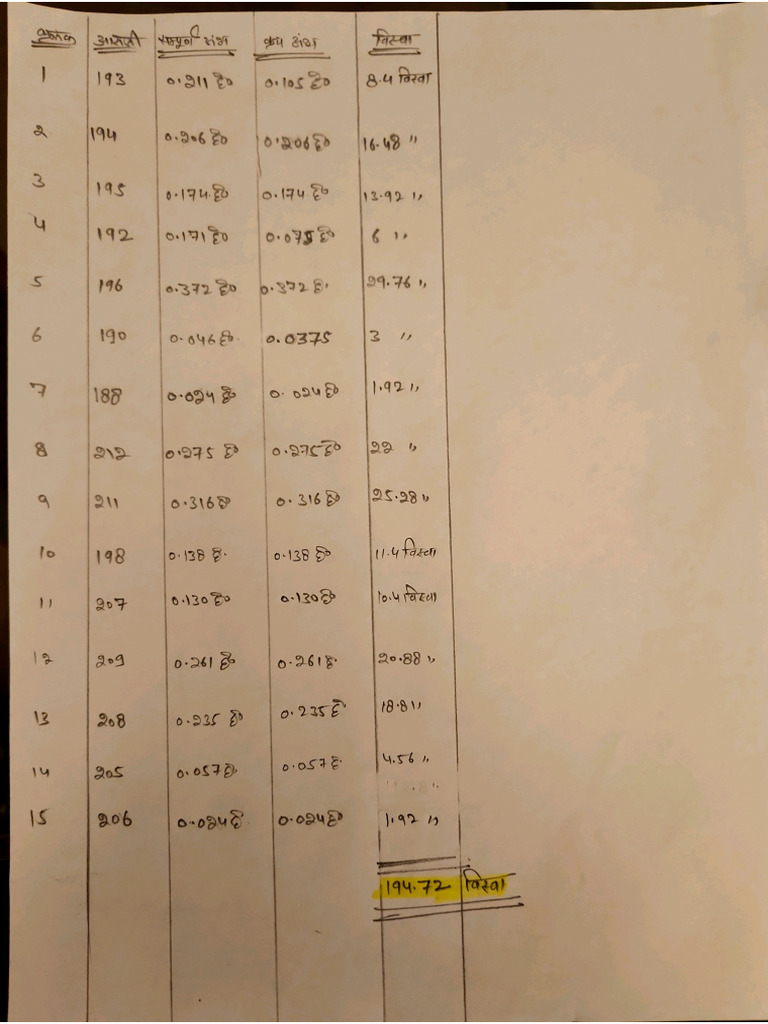 क्रमांक आराजी सम्पूर्ण अंश क्रय अंश विस्वा
1 193 0.211 हे० 0.105 हे० 8.4 विस्वा
2 194 0.206 हे० 0.206 हे० 16.48 "
3 195 0.174 हे० 0.174 हे० 13.92 "
4 192 0.171 हे० 0.075 हे० 6 "
5 196 0.372 हे० 0.372 हे. 29.76 "
6 190 0.046 हे. 0.0375 3 "
7 188 0.024 हे० 0.024 हे० 1.92 "
8 212 0.275 हे० 0.275 हे० 22 "
9 211 0.316 हे० 0.316 हे० 25.28 "
10 198 0.138 हे. 0.138 हे० 11.4 विस्वा
11 207 0.130 हे० 0.130 हे० 10.4 विस्वा
12 209 0.261 हे० 0.261 हे. 20.88 "
13 208 0.235 हे० 0.235 हे० 18.8 "
14 205 0.057 हे० 0.057 हे. 4.56 "
15 206 0.024 हे. 0.024 हे० 1.92 "
194.72 विस्वा